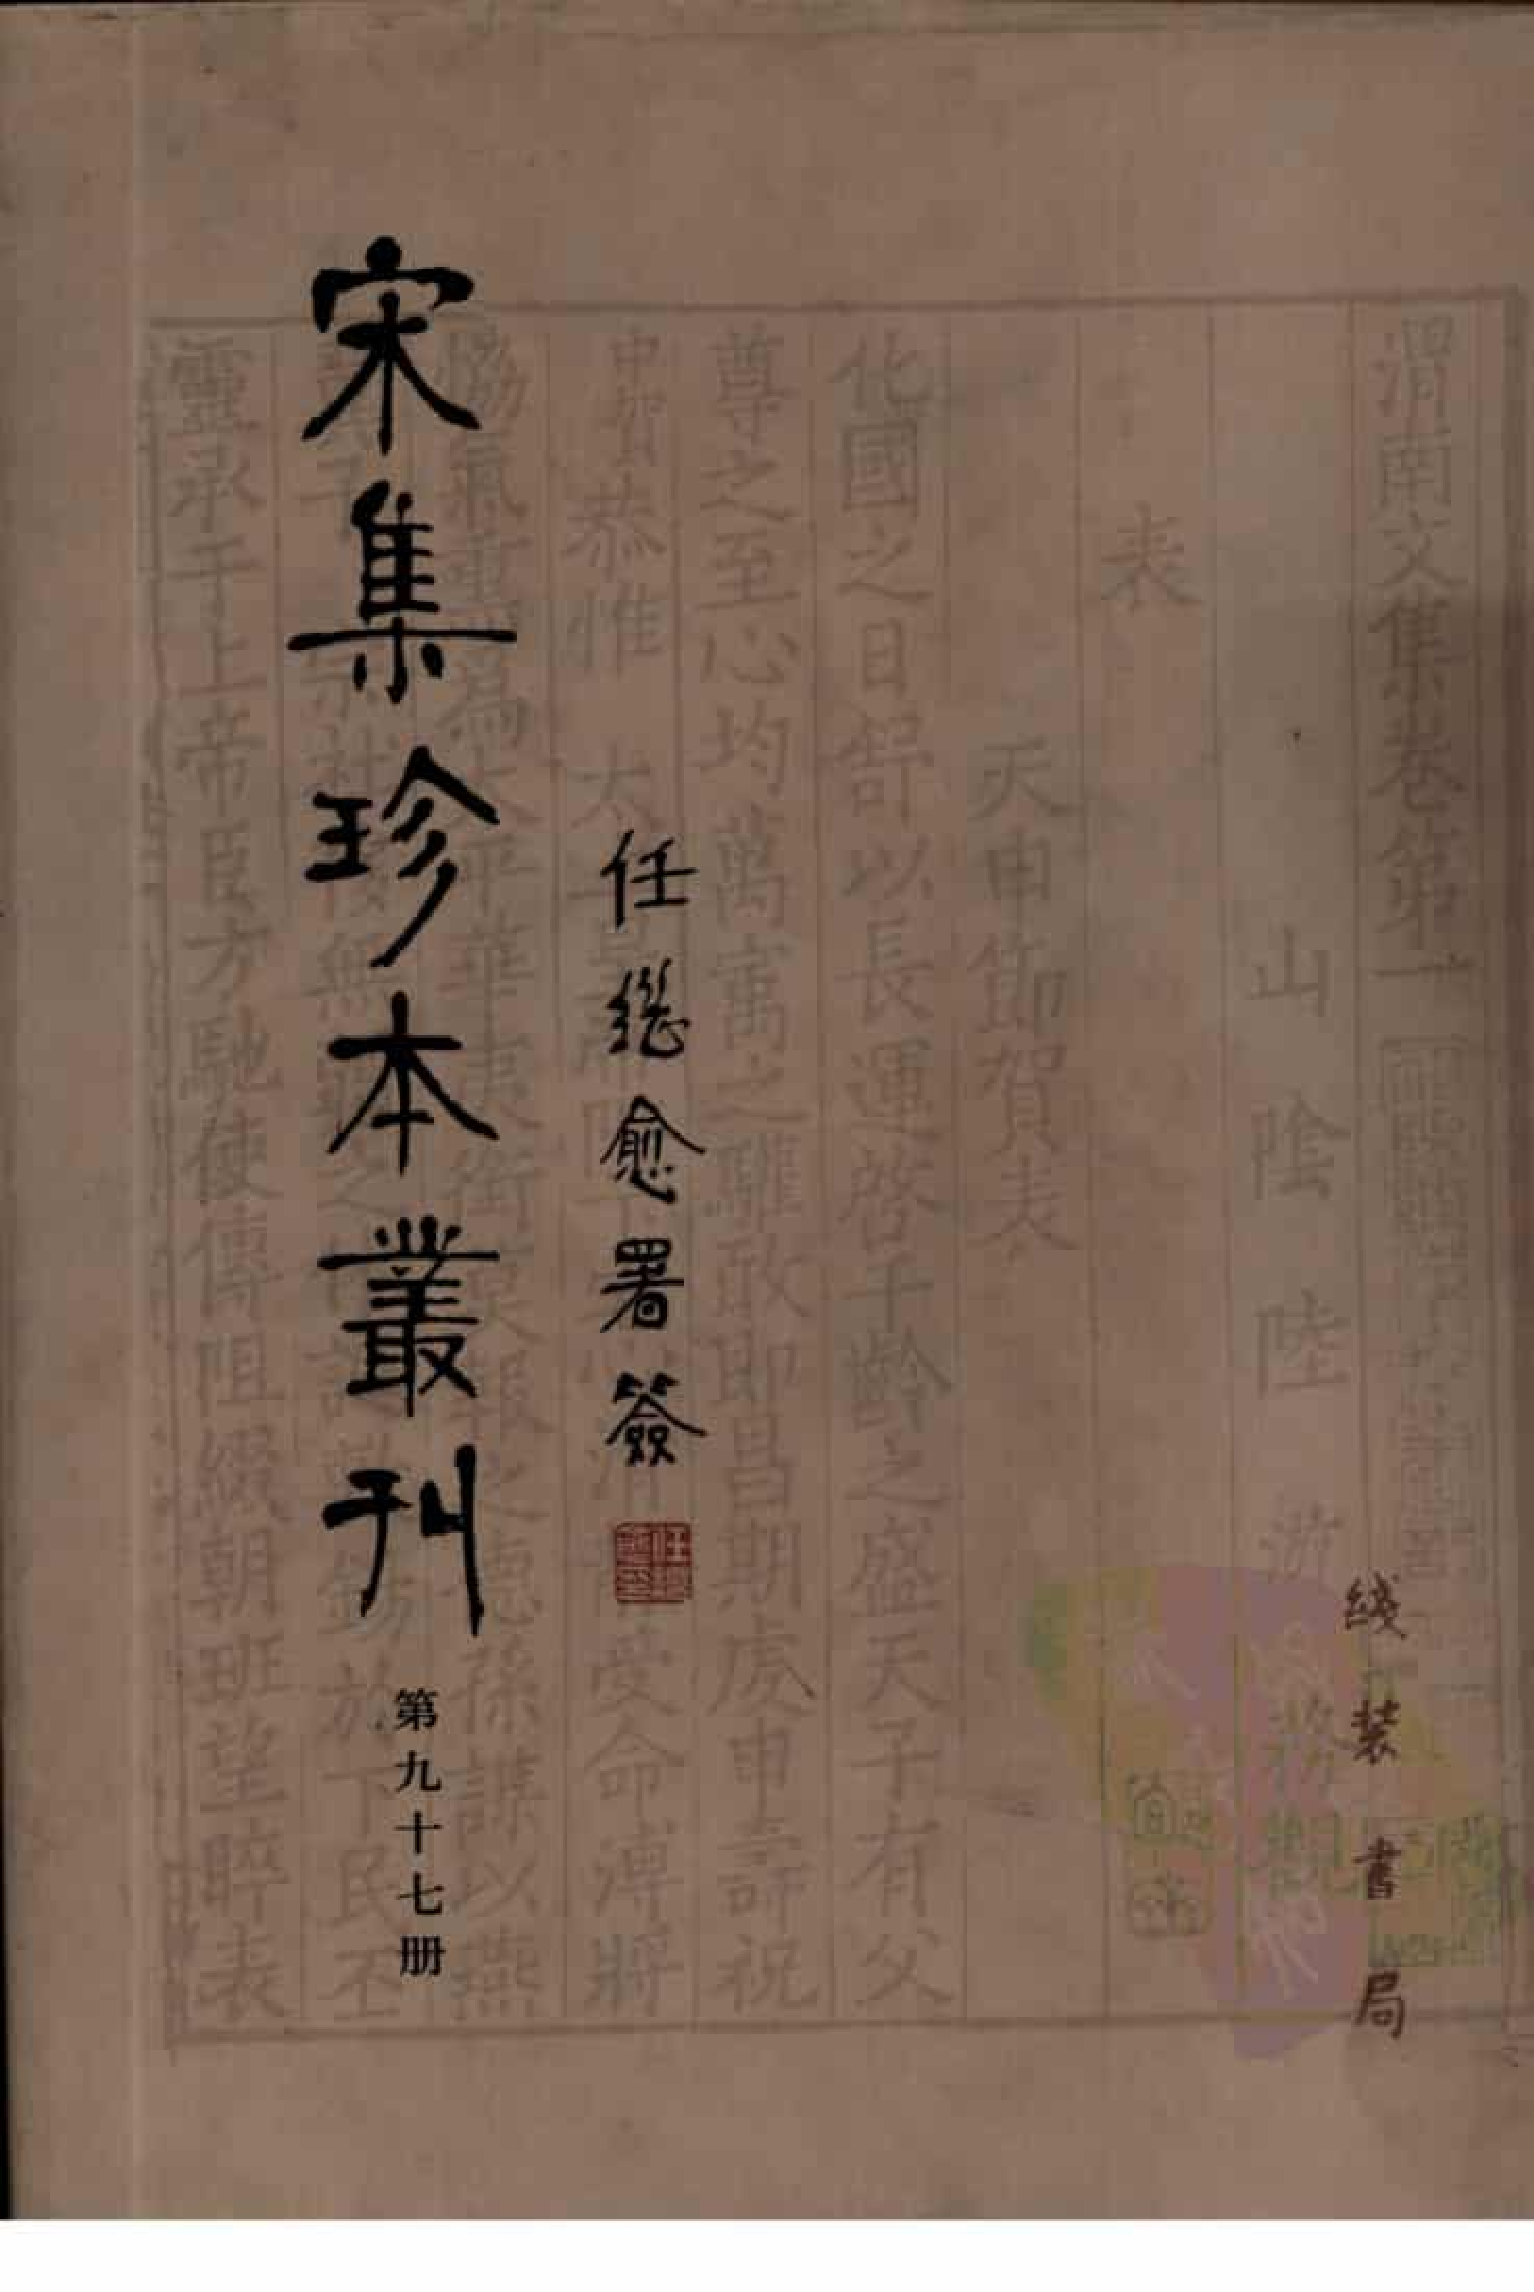 宋集珍本叢刊
第九十七册
任继愈署簽
线装書局
渭南文集卷第一
山陰陸游務觀
表
天申節賀表
化國之日舒以長運啓千齡之盛天子有父
尊之至心均萬寓之驩敢即昌期虔申壽祝
中賀恭惟
受命溥將
孫謀以燕
於下民丕
靈承于上帝臣方馳使傳阻綴朝班望睟表